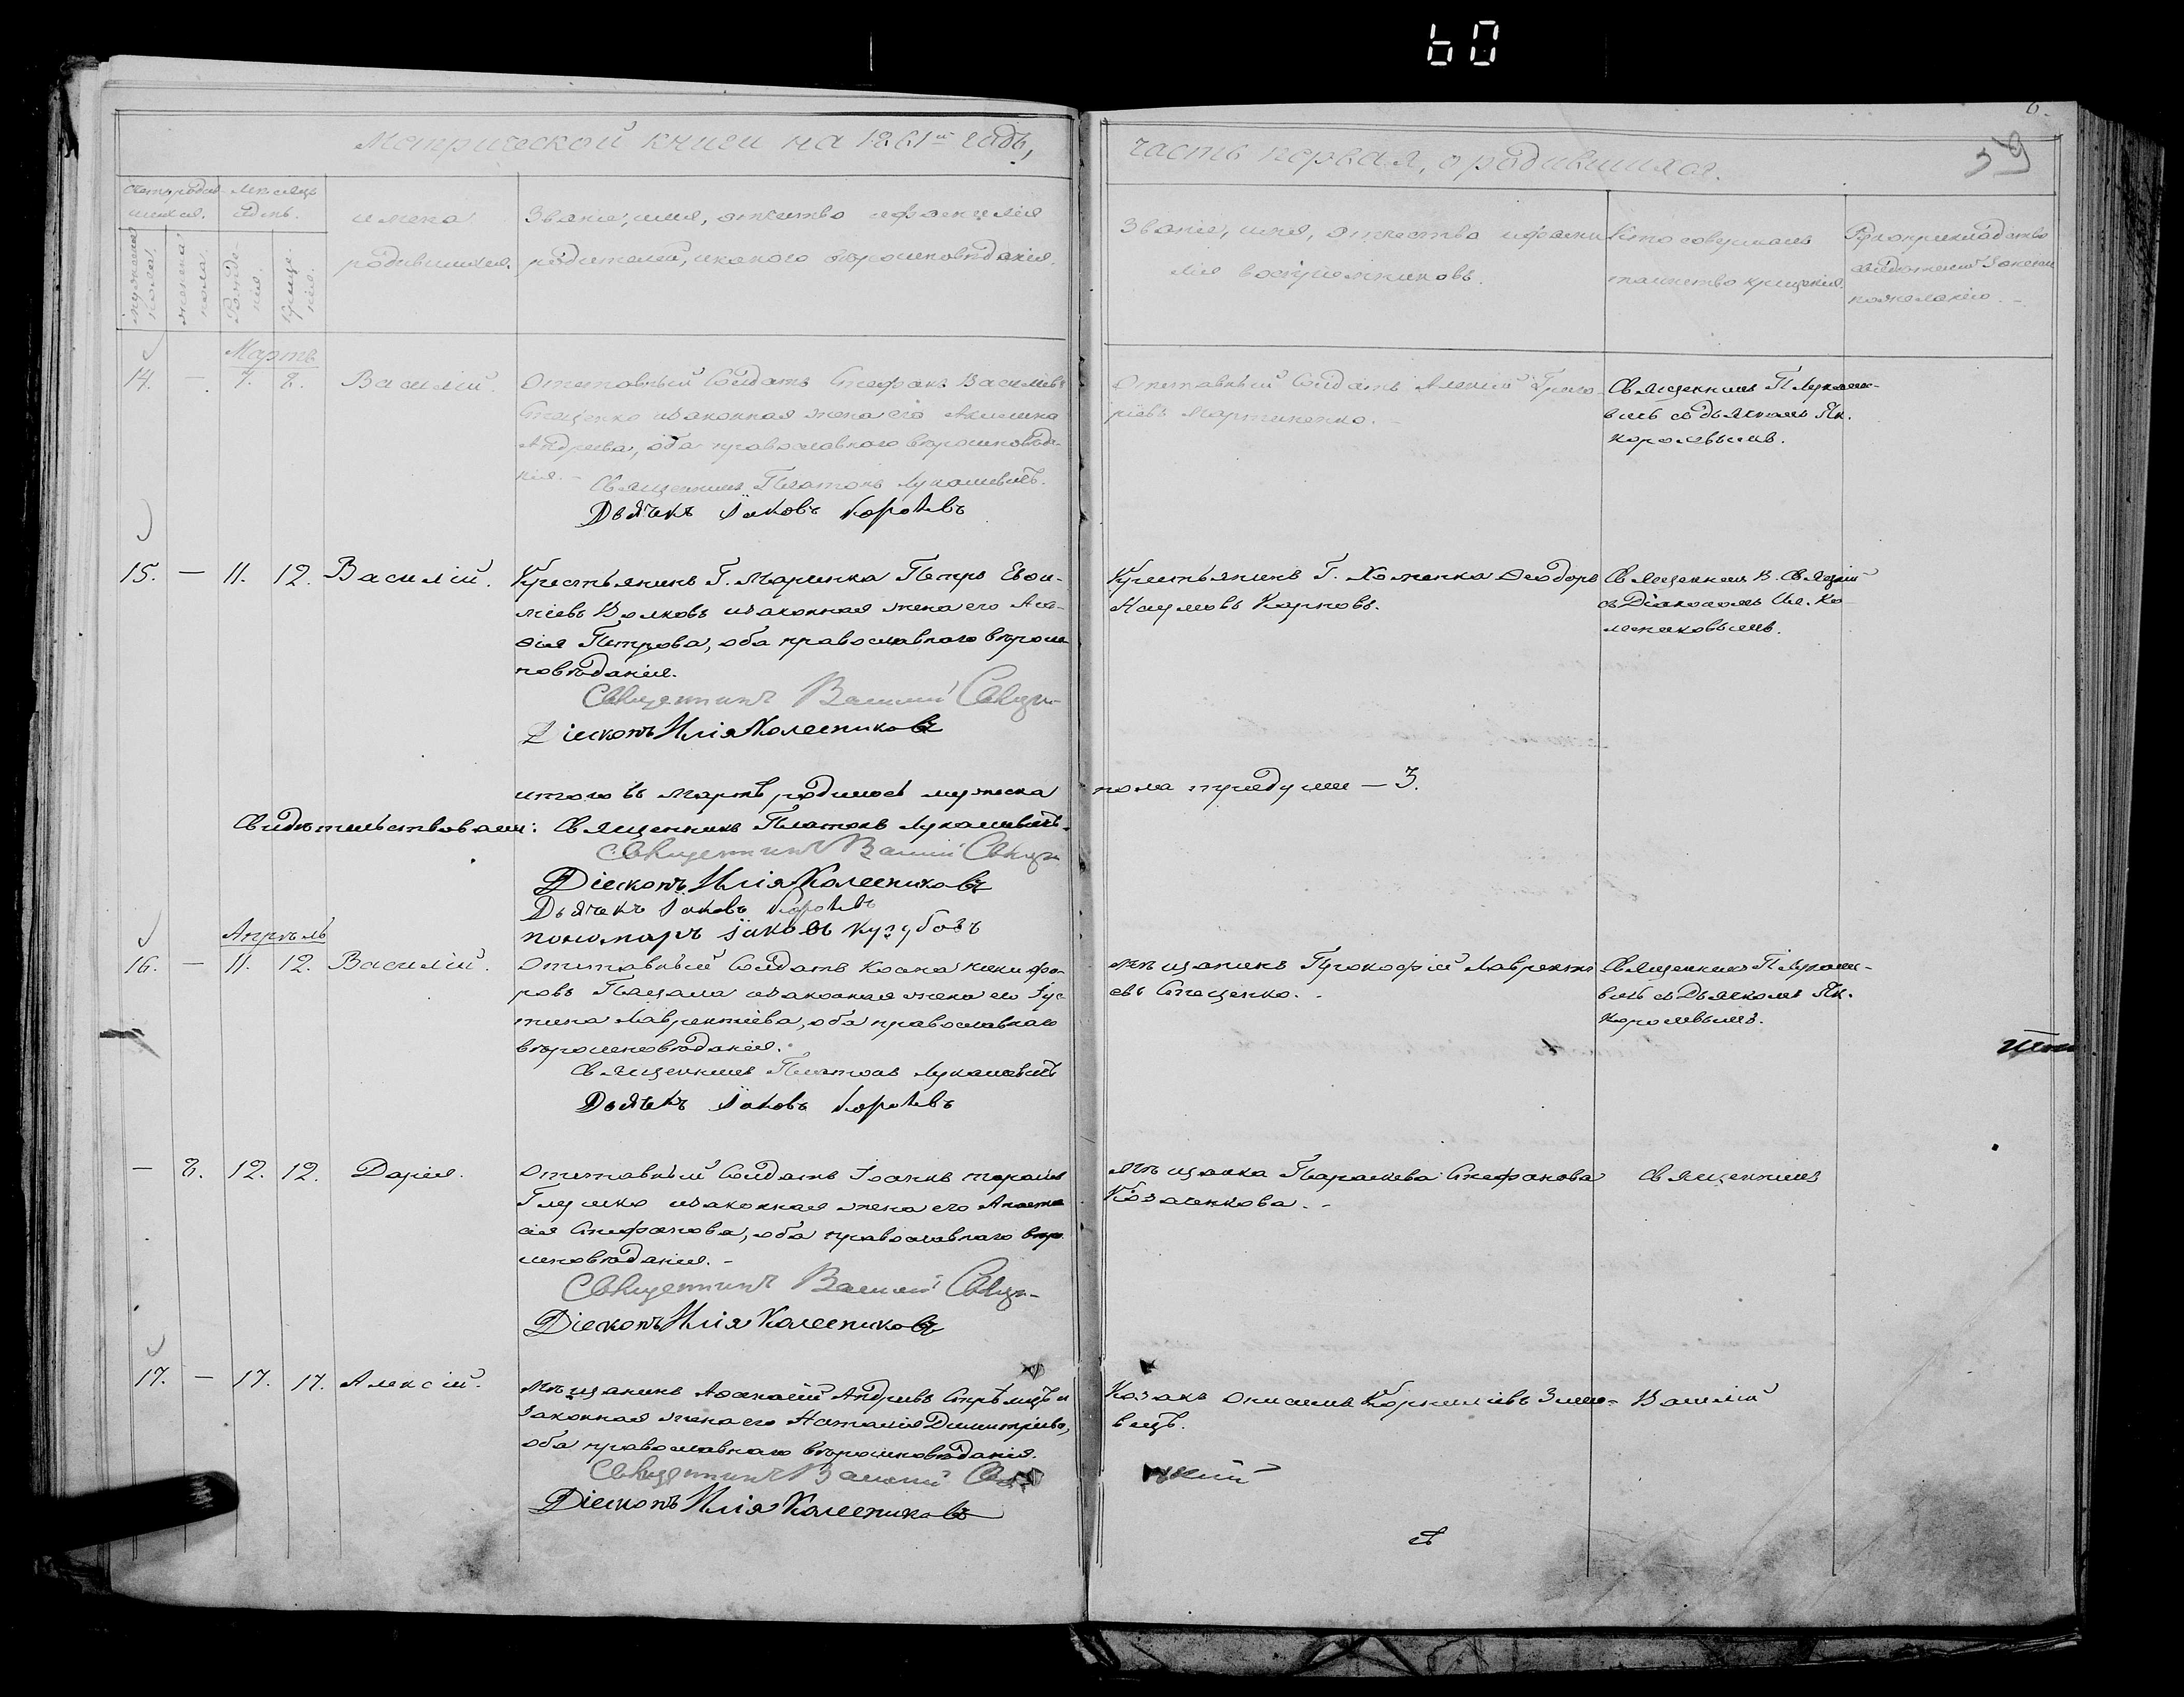 60
6.
59
Метрической книги на 1861й годъ,
часть первая, о родившихся.
Счетъ родив-
шихся.
Мѣсяцъ
и день.
мужеска
пола.
женска
пола.
Рожде-
нія.
Креще-
нія.
имена
родившихся.
Званіе, имя, отчество и фамилія
родителей, и какого вѣроисповѣданія.
Званіе, имя, отчество и фами-
лія воспріемниковъ.
Кто совершалъ
таинство крещенія.
Рукоприкладство
свидѣтелей записи
по желанію.
Мартъ
14. — 7. 8. Василій.
Отставный Солдатъ Стефанъ Васильевъ
Стаценко и законная жена его Акилина
Андреева, оба православнаго вѣроисповѣда-
нія.
Священникъ Платонъ Лукашевичъ.
Дьячекъ Іаковъ Королевъ
Отставный Солдатъ Алексій Григо-
ріевъ Мартиненко.
Священникъ П. Лукаше-
вичъ съ дьячкомъ Як.
Королевымъ.
15. — 11. 12. Василій.
Крестьянинъ Г. Маринка Петръ Евѳи-
міевъ Волковъ и законная жена его
Петрова, оба православнаго вѣроис-
повѣданія.
Священникъ Василій
Діаконъ Илія Колесниковъ
Крестьянинъ Г. Хоменка Ѳеодоръ
Наумовъ Карповъ.
Священникъ В.
съ Діакономъ Ил. Ко-
лесниковымъ.
итого въ Мартѣ родилось мужеска
пола три души — 3.
Свидѣтельствовали: Священникъ Платонъ Лукашевичъ.
Священникъ Василій
Діаконъ Илія Колесниковъ
Дьячекъ Іаковъ Королевъ
пономарь Іаковъ Кузубовъ
Апрѣль
16. — 11. 12. Василій.
Отставный Солдатъ Косма Никифо-
ровъ Пацала и законная жена его Іус-
тина Лаврентіева, оба православнаго
вѣроисповѣданія.
Священникъ Платонъ Лукашевичъ
Дьячекъ Іаковъ Королевъ
Мѣщанинъ Прокофій Лавренті-
евъ Стаценко.
Священникъ П. Лукаше-
вичъ съ Дьячкомъ Як.
Королевымъ.
— 8. 12. 12. Дарія.
Отставный Солдатъ Іоаннъ
Глушко и законная жена его Анаста-
сія Стефанова, оба православнаго вѣро-
исповѣданія.
Священникъ Василій
Діаконъ Илія Колесниковъ
Мѣщанка Параскева Стефанова
Козаченкова.
Священникъ
17. — 17. 17. Алексій.
Мѣщанинъ Аѳанасій Андреевъ Стрѣлецъ и
законная жена его Наталія Димитріева,
оба православнаго вѣроисповѣданія.
Священникъ Василій
Діаконъ Илія Колесниковъ
Козакъ Онисимъ Корниліевъ Зино-
вецъ.
Василій